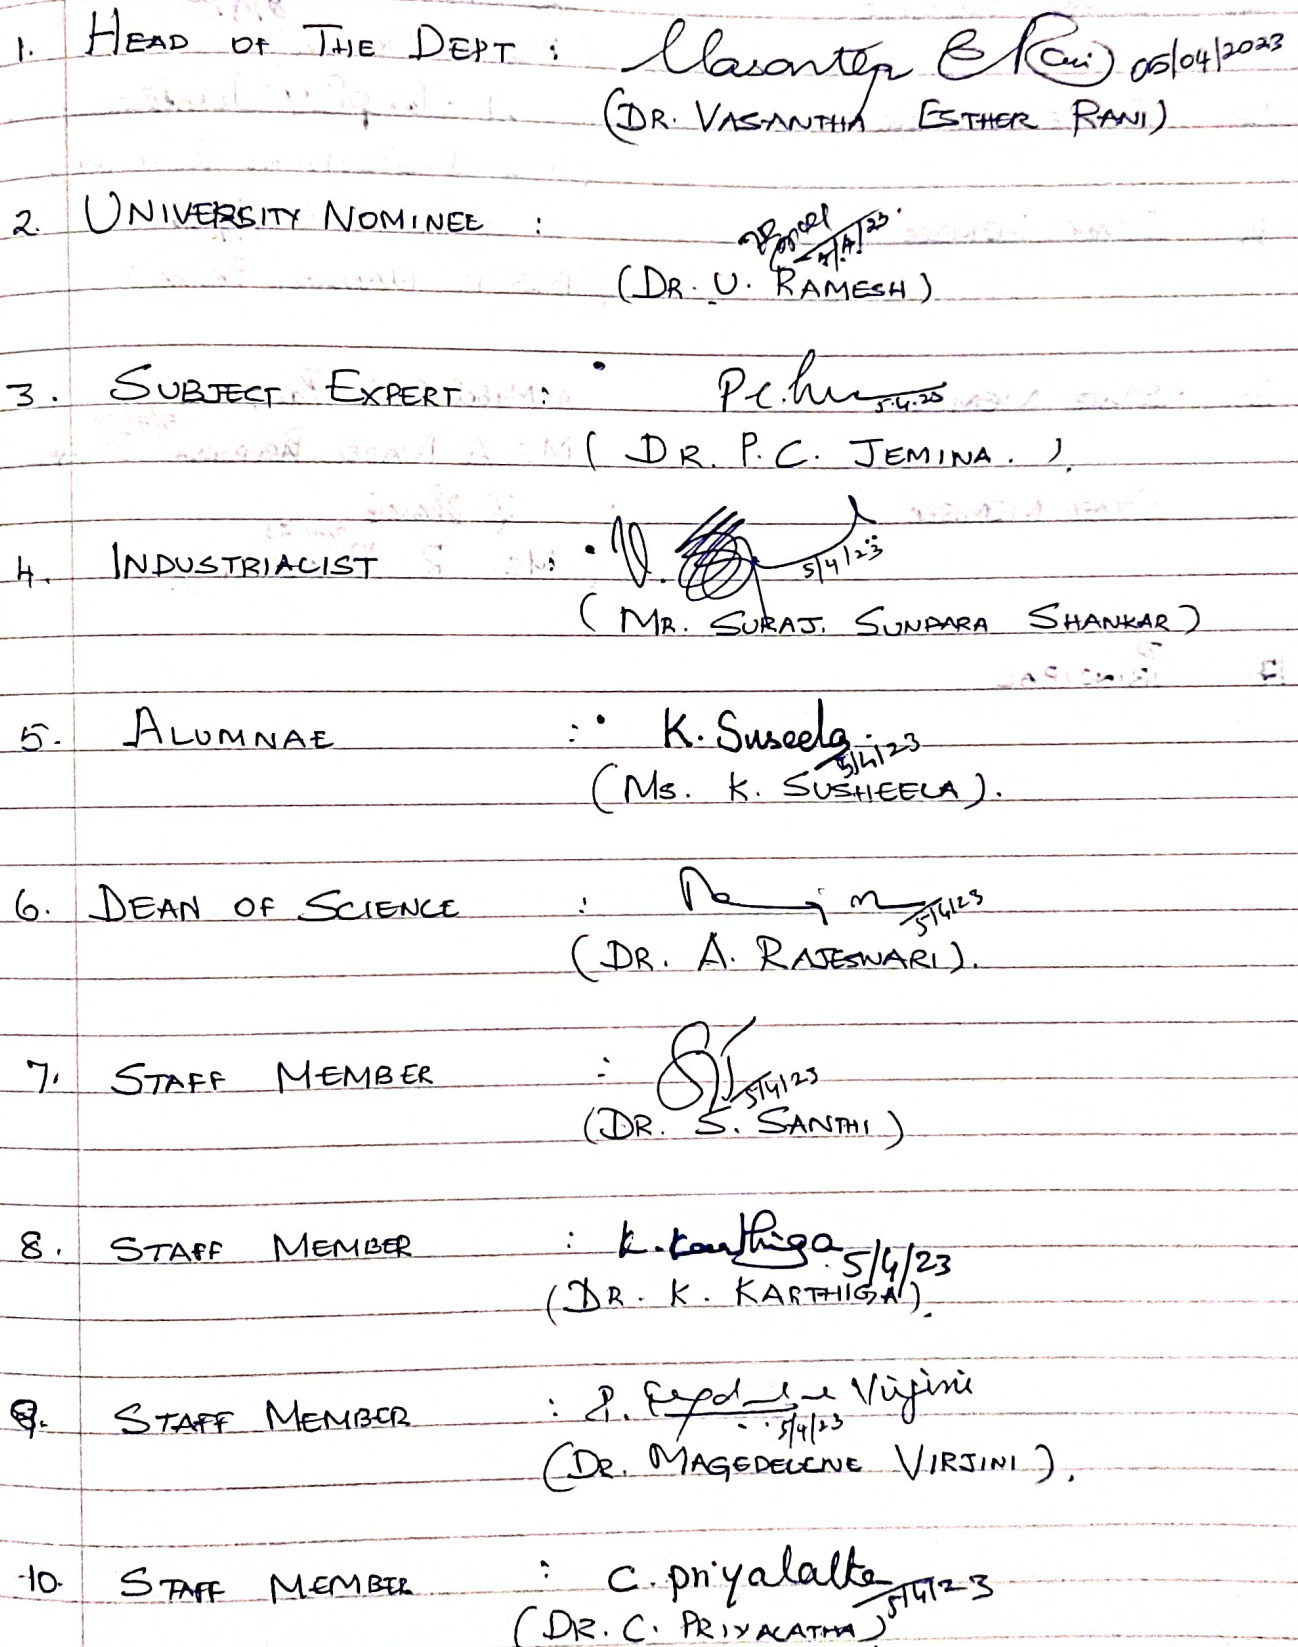 1. HEAD OF THE DEPT : Vasantha E Rani 05/04/2023
(DR. VASANTHA ESTHER RANI)
2. UNIVERSITY NOMINEE :
5/4/23.
(DR. U. RAMESH)
3. SUBJECT EXPERT : 5.4.23
(DR. P.C. JEMINA.).
4. INDUSTRIALIST : 5/4/23
(MR. SURAJ. SUNDARA SHANKAR)
5. ALUMNAE : K. Suseela
5/4/23
(MS. K. SUSHEELA).
6. DEAN OF SCIENCE : 5/4/23
(DR. A. RAJESWARI).
7. STAFF MEMBER : 5/4/23
(DR. S. SANTHI)
8. STAFF MEMBER : K. Karthiga 5/4/23
(DR. K. KARTHIGA).
9. STAFF MEMBER : Virjini
5/4/23
(DR. MAGEDELENE VIRJINI).
10. STAFF MEMBER : C. Priyalatha 5/4/23
(DR. C. PRIYALATHA)